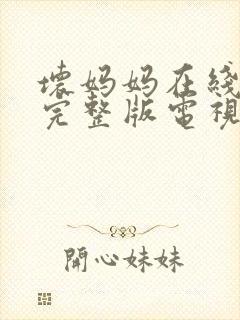 壞妈妈在綫
完整版電視
開心妹妹